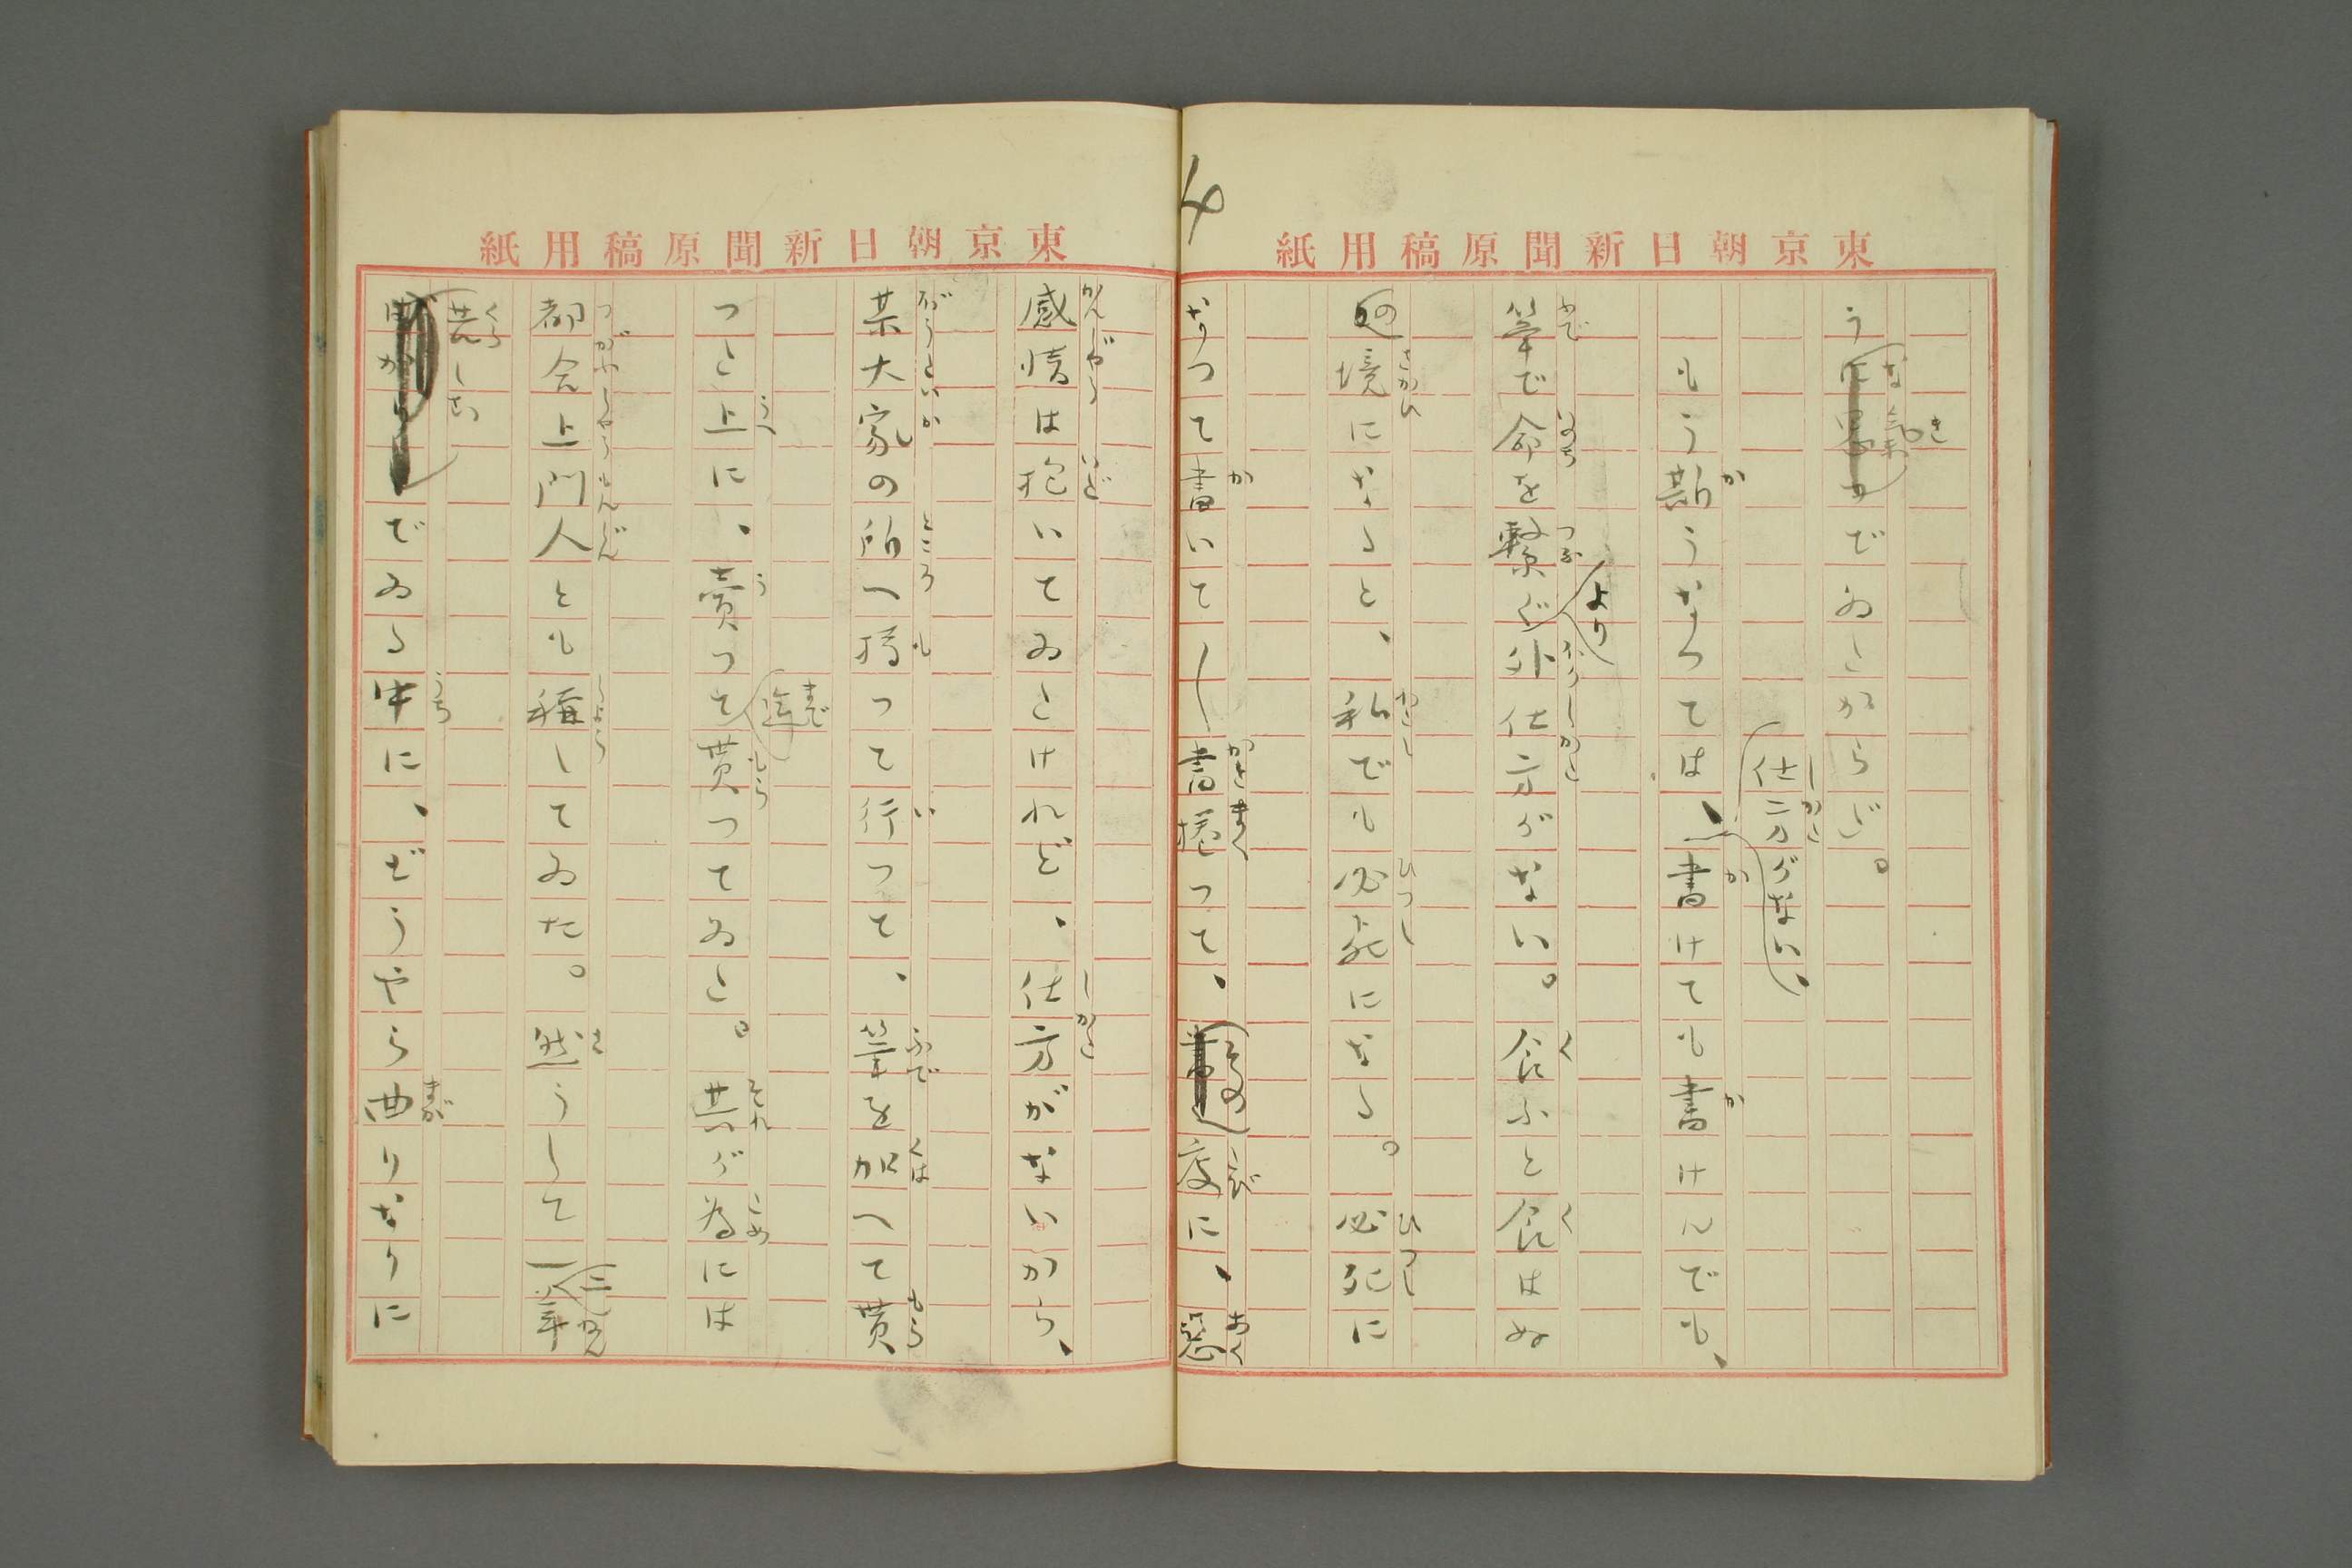 東京朝日新聞原稿用紙
うな気でゐたからだ。
もう斯うなつては、仕方がない、書けても書けんでも、
筆で命を繋ぐより外仕方がない。食ふと食はぬ
の境になると、私でも必死になる。必死に
なつて書いて〳〵書捲つて、その度に、悪
4
東京朝日新聞原稿用紙
感情は抱いてゐたけれど、仕方がないから、
某大家の所へ持つて行つて、筆を加へて貰
つた上に、賣つて迄貰つてゐた。其が為には
都合上門人とも称してゐた。然うして一二年
でゐる中に、どうやら曲りなりに